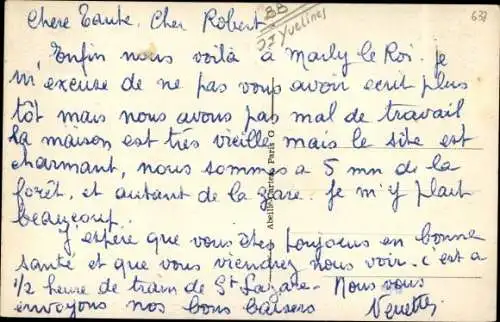 Chère Tante. Cher Robert.
BB
JJ Yvelines
637
Enfin nous voilà à Marly le Roi. Je
m'excuse de ne pas vous avoir ecrit plus
tôt mais nous avons pas mal de travail
la maison est très vieille mais le site est
charmant, nous sommes à 5 mn de la
forêt, et autant de la gare. Je m'y plait
beaucoup.
J'espère que vous êtes toujours en bonne
santé et que vous viendrez nous voir. c'est a
1/2 heure de train de St Lazare. Nous vous
envoyons nos bons baisers
Abeille-Cartes Paris